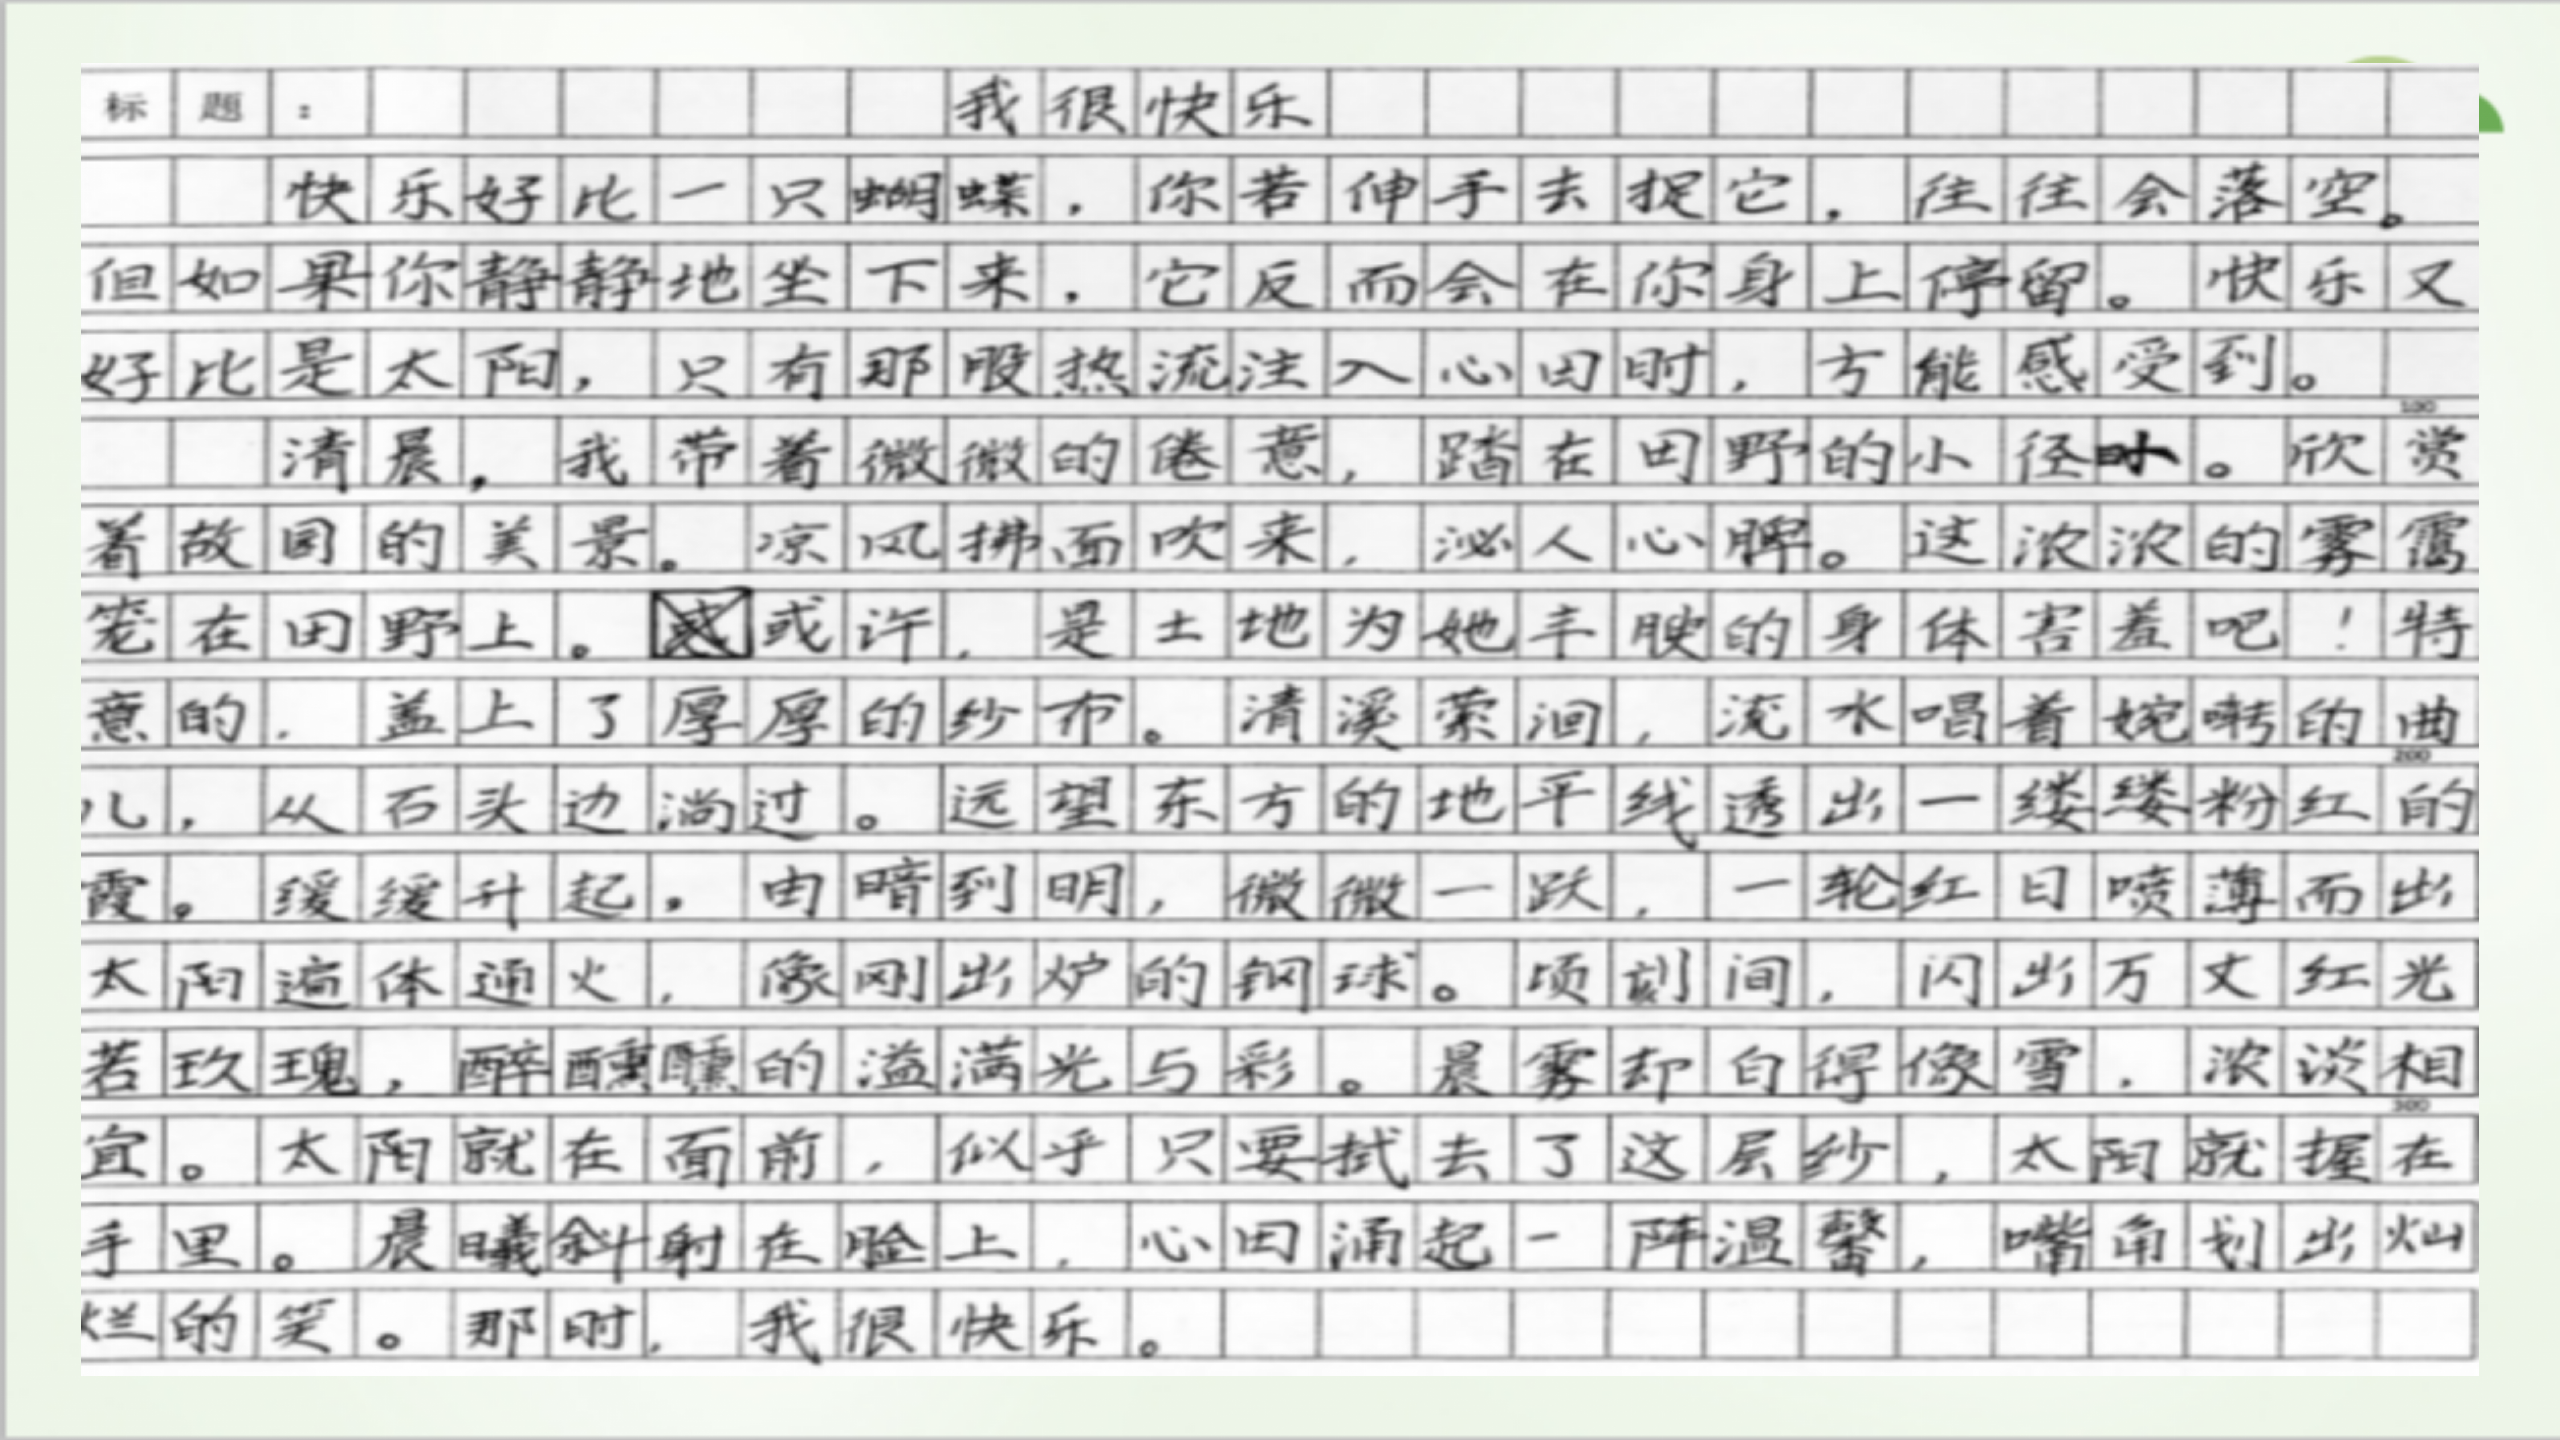 标题： 我很快乐
快乐好比一只蝴蝶，你若伸手去捉它，往往会落空。
但如果你静静地坐下来，它反而会在你身上停留。快乐又
好比是太阳，只有那股热流注入心田时，方能感受到。
100
清晨，我带着微微的倦意，踏在田野的小径。欣赏
着故园的美景。凉风拂面吹来，泌人心脾。这浓浓的雾霭
笼在田野上。或许，是土地为她丰腴的身体害羞吧！特
意的，盖上了厚厚的纱布。清溪萦洄，流水唱着婉啭的曲
200
儿，从石头边淌过。远望东方的地平线透出一缕缕粉红的
霞。缓缓升起，由暗到明，微微一跃，一轮红日喷薄而出
太阳遍体通火，像刚出炉的钢球。顷刻间，闪出万丈红光
若玫瑰，醉醺醺的溢满光与彩。晨雾却白得像雪，浓淡相
300
宜。太阳就在面前，似乎只要拭去了这层纱，太阳就握在
手里。晨曦斜射在脸上，心田涌起一阵温馨，嘴角划出灿
烂的笑。那时，我很快乐。